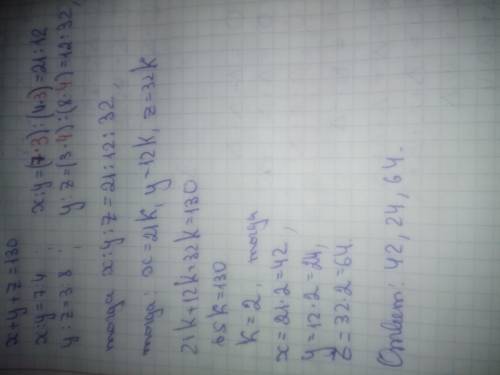 x+y+z=130
x:y=7:4 ; x:y=(7·3):(4·3)=21:12
y:z=3:8 ; y:z=(3·4):(8·4)=12:32,
тогда x:y:z=21:12:32,
тогда: x=21k, y=12k, z=32k
21k+12k+32k=130
65k=130
k=2, тогда
x=21·2=42,
y=12·2=24,
z=32·2=64.
Ответ: 42, 24, 64.